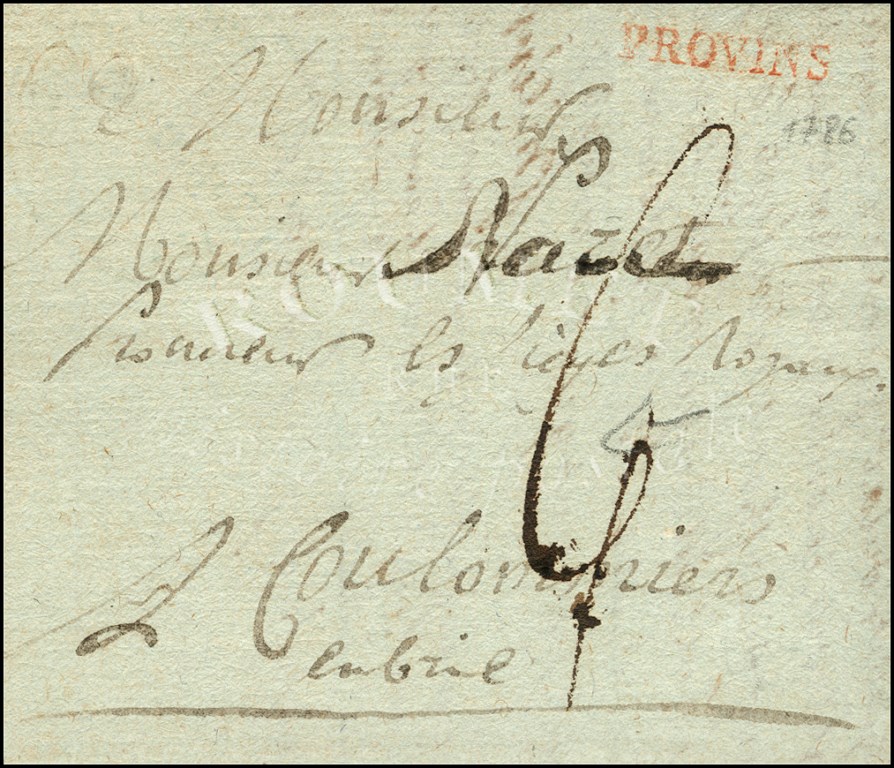 PROVINS
1786
A Monsieur
Monsieur Nazet
Procureur es sieges Royaux.
6
A Coulommiers
en brie